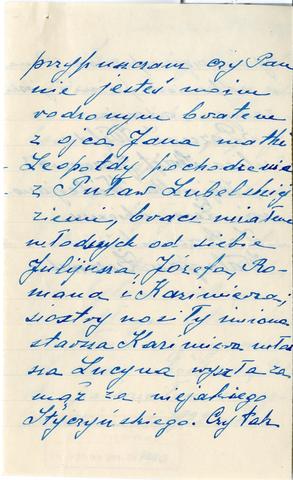 przypuszczam czy Pan
nie jesteś moim
rodzonym bratem
z ojca Jana matki
Leopoldy pochodzenia
z Puław Lubelskiej
ziemi, braci miałem
młodszych od siebie
Julijusza, Józefa, Ro-
mana i Kazimierza,
siostry nosiły imiona
starsza Kazimiera młod
sza Lucyna wyszła za
mąż za niejakiego
Styczyńskiego. Czy tak